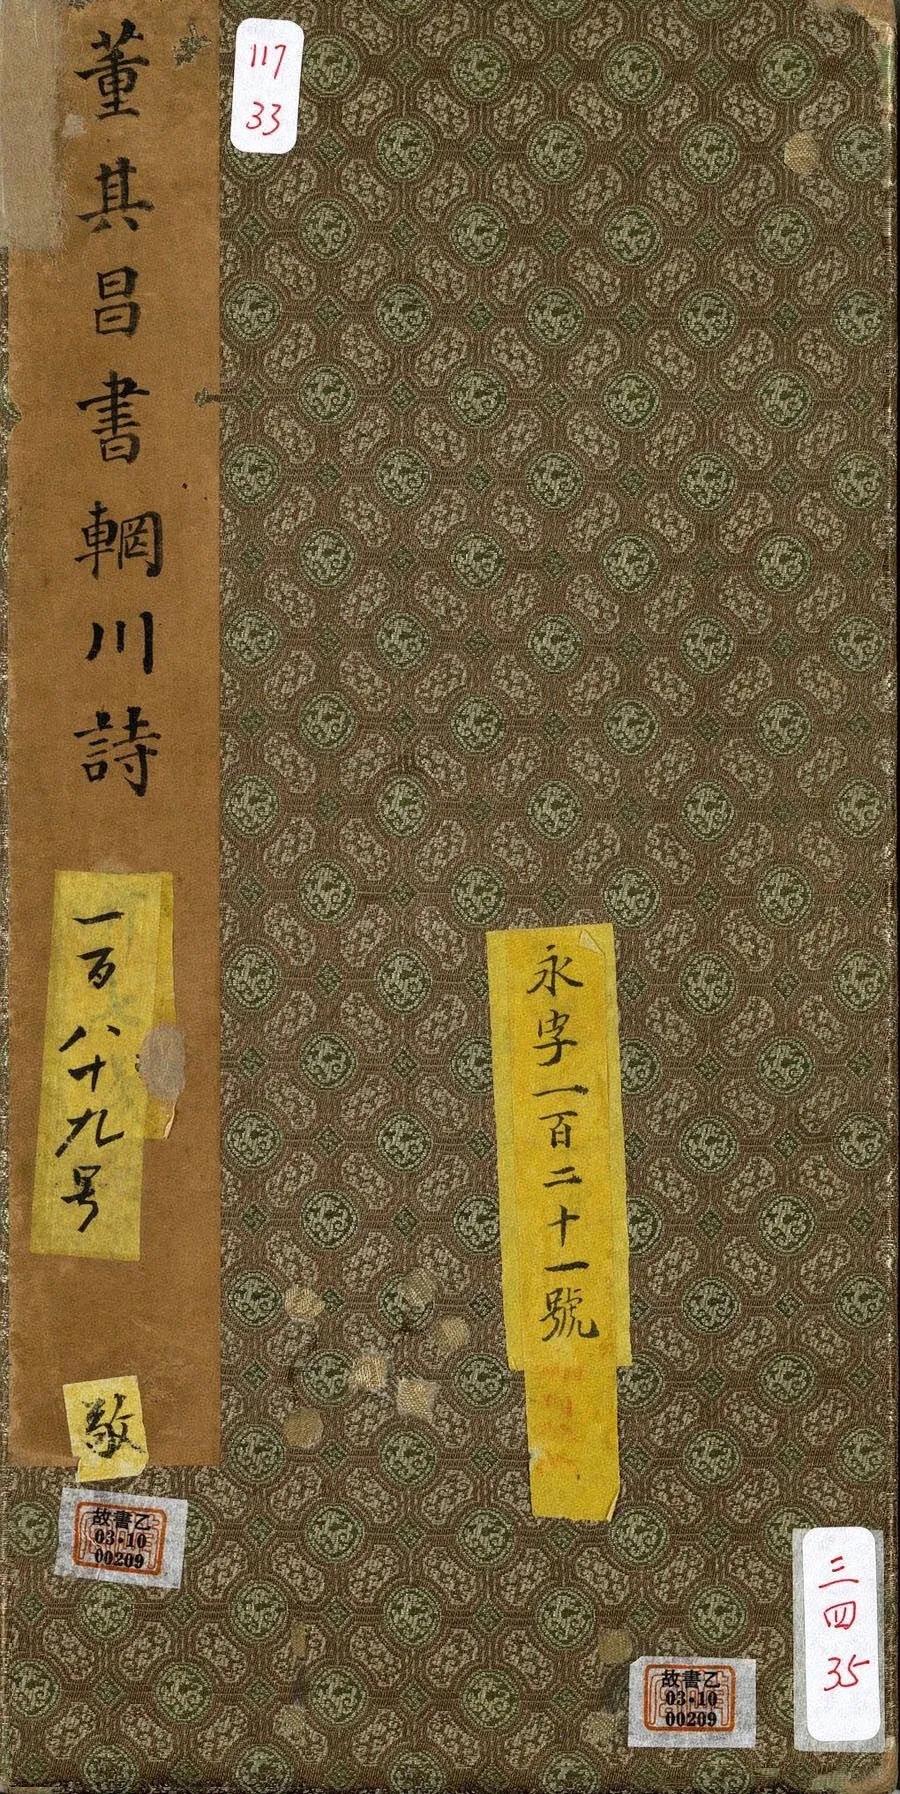 董其昌書輞川詩
117
33
一百八十九号
永字一百二十一號
敬
故書乙
03·10
00209
故書乙
03·10
00209
三
四
35